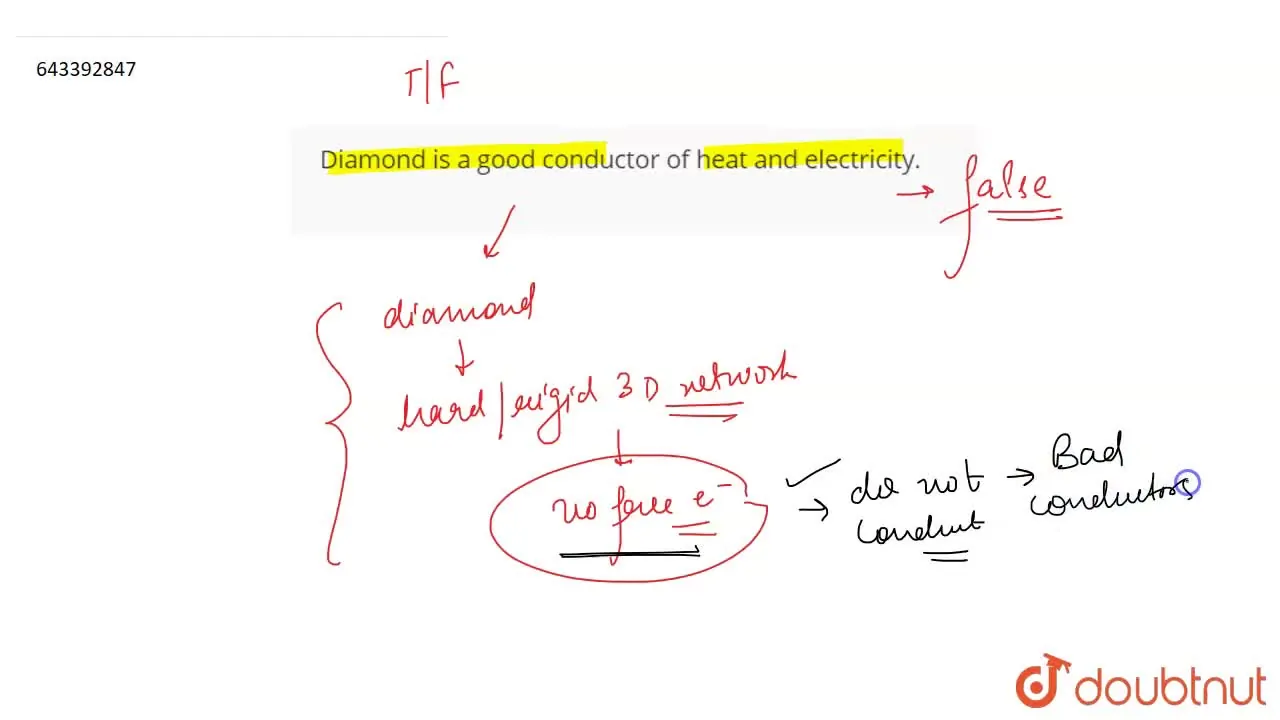 643392847
T/F
Diamond is a good conductor of heat and electricity.
→ false
diamond
hard/rigid 3D network
no free e⁻
→ do not conduct
→ Bad conductors
doubtnut